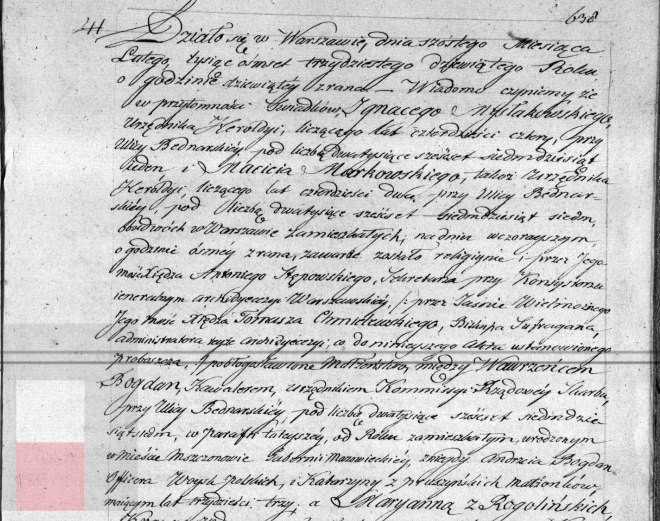 638
44
Działo się w Warszawie, dnia szóstego Miesiąca
Lutego, tysiąc ośmset trzydziestego dziewiątego Roku
o godzinie dziewiątéy zrana — Wiadomo czyniemy że
w przytomności Świadków, Ignacego Mysłakowskiego,
Urzędnika Heroldyi, liczącego lat czterdzieści cztery, przy
Ulicy Bednarskiéy pod liczbą dwatysiące sześćset siedmdziesiąt
jeden i Macieja Markowskiego, także Urzędnika
Heroldyi liczącego lat czterdzieści dwa, przy Ulicy Bednar-
skiéy, pod liczbą dwatysiące sześćset siedmdziesiąt siedm,
obudwóch w Warszawie zamieszkałych, na dniu wczorayszym,
o godzinie ósméy zrana, zawarte zostało religiynie i przez Jego-
mość Xiędza Antoniego Stępowskiego, Sekretarza przy Konsystorzu
jeneralnym Archidyecezyi Warszawskiéy, /: przez Jaśnie Wielmożnego
Jego Mość Xiędza Tomasza Chmielewskiego, Biskupa Sufragana,
administratora teyże Archidyecezyi, co do ninieyszego Aktu ustanowionego
proboszcza, :/ pobłogosławione Małżeństwo, między Wawrzeńcem
Bogdan, Kawalerem, urzędnikiem Kommissyi Rządowéy Skarbu,
przy Ulicy Bednarskiéy, pod liczbą dwatysiące sześćset siedmdzie
siąt siedm, w parafii tuteyszéy, od Roku zamieszkałym, urodzonym
w Mieście Mszczonowie Gubernii Mazowieckiéy, z niegdy Andrzeia Bogdan
Officera Woysk polskich, i Katarzyny z małżonków
maiącym lat trzydzieści trzy, a Maryanną z Rogolińskich,